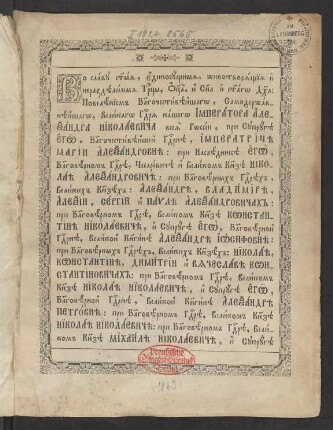 Во славу ст҃ыѧ, єдиносꙋщныѧ, животворѧщїѧ и
нераздѣлимыѧ Трⷪ҇цы, Ѻц҃а, и Сн҃а и ст҃агѡ Дх҃а:
Повелѣнїемъ Благочестивѣйшагѡ, Самодержав-
нѣйшагѡ, Великагѡ Гдⷭ҇рѧ нашегѡ ІМПЕРАТОРА АЛЕ-
ѮАНДРА НІКОЛАЕВИЧА всеѧ Рѡссіи, при Сꙋпрꙋгѣ
ЄГѠ, Благочестивѣйшей Гдⷭ҇рнѣ, ІМПЕРАТРИЦѢ
МАРІИ АЛЕѮАНДРОВНѢ: при Наслѣдникѣ ЄГѠ,
Благовѣрномъ Гдⷭ҇рѣ, Цесаревичѣ и Великомъ Кнѧзѣ НІКО-
ЛАѢ АЛЕѮАНДРОВИЧѢ: при Благовѣрныхъ Гдⷭ҇рѣхъ,
Великихъ Кнѧзѣхъ: АЛЕѮАНДРѢ, ВЛАДИМІРѢ,
АЛЕѮІИ, СЕРГІИ и ПАѴЛѢ АЛЕѮАНДРОВИЧАХЪ:
при Благовѣрномъ Гдⷭ҇рѣ, Великомъ Кнѧзѣ КѠНСТАН-
ТІНѢ НІКОЛАЕВИЧѢ, и Сꙋпрꙋгѣ ЄГѠ, Благовѣрной
Гдⷭ҇рнѣ, Великой Кнѧгинѣ АЛЕѮАНДРѢ ІѠСИФОВНѢ:
при Благовѣрныхъ Гдⷭ҇рѣхъ, Великихъ Кнѧзѣхъ: НІКОЛАѢ,
КѠНСТАНТІНѢ, ДИМИТРІИ и ВѦЧЕСЛАВѢ КѠН-
СТАНТІНОВИЧАХЪ: при Благовѣрномъ Гдⷭ҇рѣ, Великомъ
Кнѧзѣ НІКОЛАѢ НІКОЛАЕВИЧѢ, и Сꙋпрꙋгѣ ЄГѠ,
Благовѣрной Гдⷭ҇рнѣ, Великой Кнѧгинѣ АЛЕѮАНДРѢ
ПЕТРОВНѢ: при Благовѣрномъ Гдⷭ҇рѣ, Великомъ Кнѧзѣ
НІКОЛАѢ НІКОЛАЕВИЧѢ: при Благовѣрномъ Гдⷭ҇рѣ, Вели-
комъ Кнѧзѣ МІХАИЛѢ НІКОЛАЕВИЧѢ, и Сꙋпрꙋгѣ
Preußische
Staatsbibliothek
Berlin